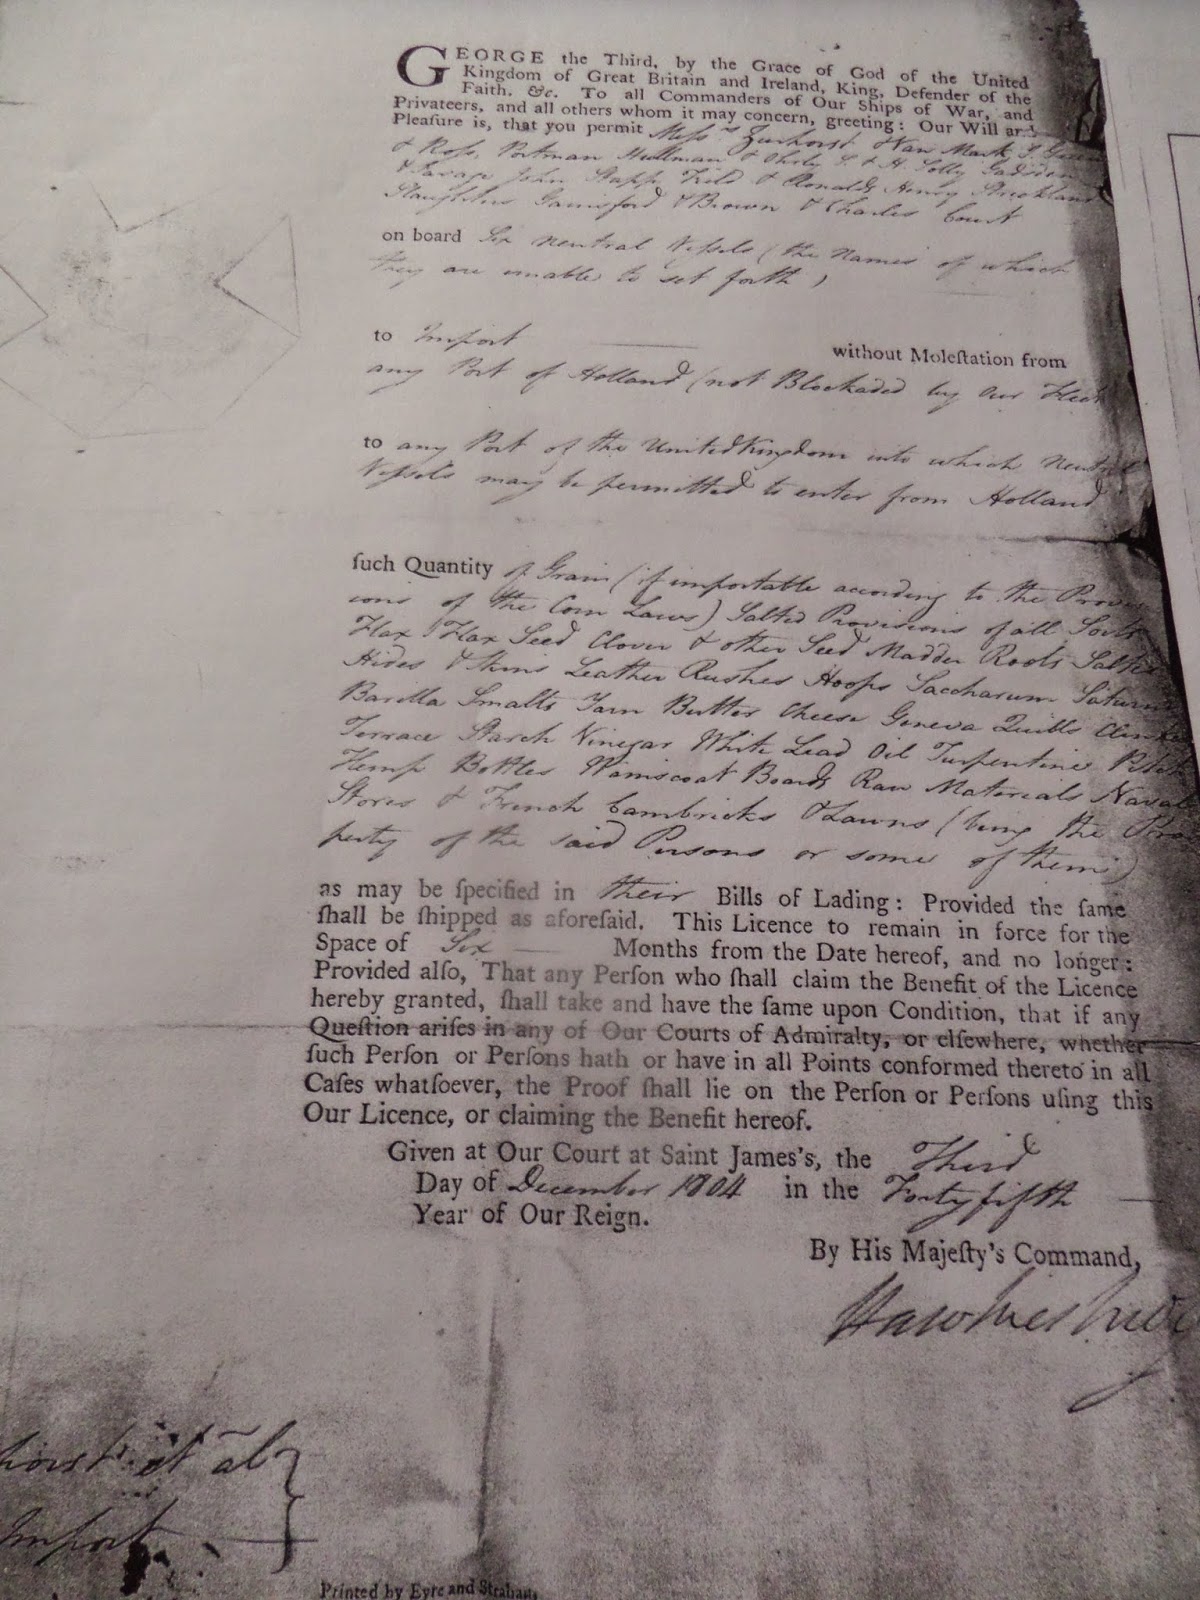 GEORGE the Third, by the Grace of God of the United
Kingdom of Great Britain and Ireland, King, Defender of the
Faith, &c. To all Commanders of Our Ships of War, and
Privateers, and all others whom it may concern, greeting: Our Will and
Pleaſure is, that you permit Meſs.rs Zurhorst & Van Mark, S. Green
& Roſs, Portman Mullman & S. & H. Solly Gadsden
& Savage John Stapp, Henry Strickland
Slaughter Gainsford & Brown & Charles Court
on board Six Neutral Veſsels (the Names of which
they are unable to set forth)
to Import without Moleſtation from
any Port of Holland (not Blockaded by Our Fleet
to any Port of the United Kingdom into which Neutral
Veſsels may be permitted to enter from Holland
ſuch Quantity of Grain (if importable according to the Provis
ions of the Corn Laws) Salted Provisions of all Sorts
Flax Flax Seed Clover & other Seed Madder Roots Salted
Hides & Skins Leather Rushes Hoops Saccharum Saturni
Barilla Smalts Yarn Butter Cheese Geneva Quills Clinkers
Terrace Starch Vinegar White Lead Oil Turpentine Pitch
Hemp Bottles Wainscoat Boards Raw Materials Naval
Stores & French Cambricks & Lawns (being the Pro
perty of the said Persons or some of them)
as may be ſpecified in their Bills of Lading: Provided the ſame
ſhall be ſhipped as aforeſaid. This Licence to remain in force for the
Space of Six Months from the Date hereof, and no longer:
Provided alſo, That any Perſon who ſhall claim the Benefit of the Licence
hereby granted, ſhall take and have the ſame upon Condition, that if any
Queſtion ariſes in any of Our Courts of Admiralty, or elſewhere, whether
ſuch Perſon or Perſons hath or have in all Points conformed thereto in all
Caſes whatſoever, the Proof ſhall lie on the Perſon or Perſons uſing this
Our Licence, or claiming the Benefit hereof.
Given at Our Court at Saint James's, the Third
Day of December 1804 in the Forty fifth
Year of Our Reign.
By His Majeſty's Command,
Hawkesbury
horst et al
Import
Printed by Eyre and Strahan,